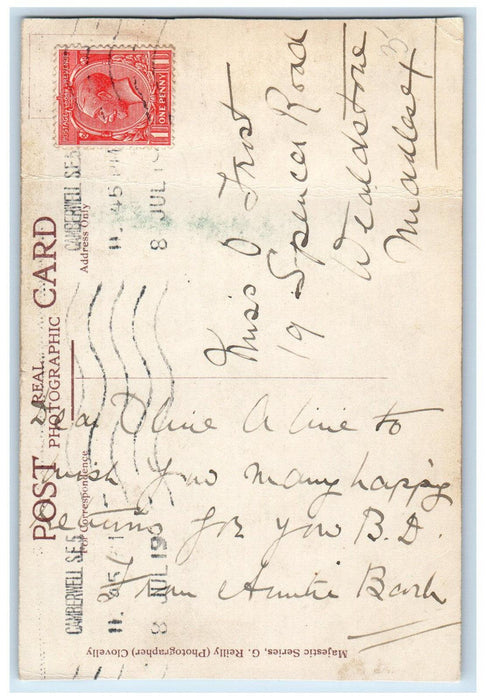 POST CARD
REAL
PHOTOGRAPHIC
For Correspondence
Address Only
POSTAGE
REVENUE
ONE PENNY
CAMBERWELL S.E.5
11.45
8 JUL 19
CAMBERWELL S.E.5
11.45
8 JUL 19
Miss O Frost
19 Spencer Road
Wealdstone
Middlesex
Dear Olive A line to
wish you many happy
returns for you B.D.
From Auntie
Majestic Series, G. Reilly (Photographer) Clovelly